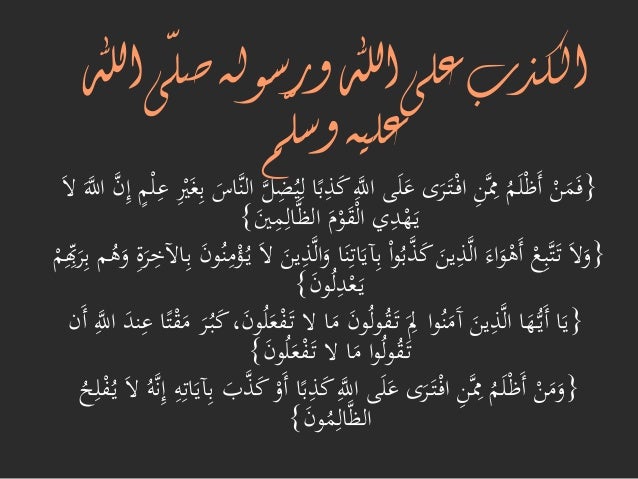 الكذب على الله ورسوله صلّى الله
عليه وسلّم
{فَمَنْ أَظْلَمُ مِمَّنِ افْتَرَى عَلَى اللَّهِ كَذِبًا لِيُضِلَّ النَّاسَ بِغَيْرِ عِلْمٍ إِنَّ اللَّهَ لاَ
يَهْدِي الْقَوْمَ الظَّالِمِينَ}
{وَلاَ تَتَّبِعْ أَهْوَاءَ الَّذِينَ كَذَّبُواْ بِآيَاتِنَا وَالَّذِينَ لاَ يُؤْمِنُونَ بِالآخِرَةِ وَهُم بِرَبِّهِمْ
يَعْدِلُونَ}
{يَا أَيُّهَا الَّذِينَ آَمَنُوا لِمَ تَقُولُونَ مَا لا تَفْعَلُونَ، كَبُرَ مَقْتًا عِندَ اللَّهِ أَن
تَقُولُوا مَا لا تَفْعَلُونَ}
{وَمَنْ أَظْلَمُ مِمَّنِ افْتَرَى عَلَى اللَّهِ كَذِبًا أَوْ كَذَّبَ بِآيَاتِهِ إِنَّهُ لاَ يُفْلِحُ
الظَّالِمُونَ}